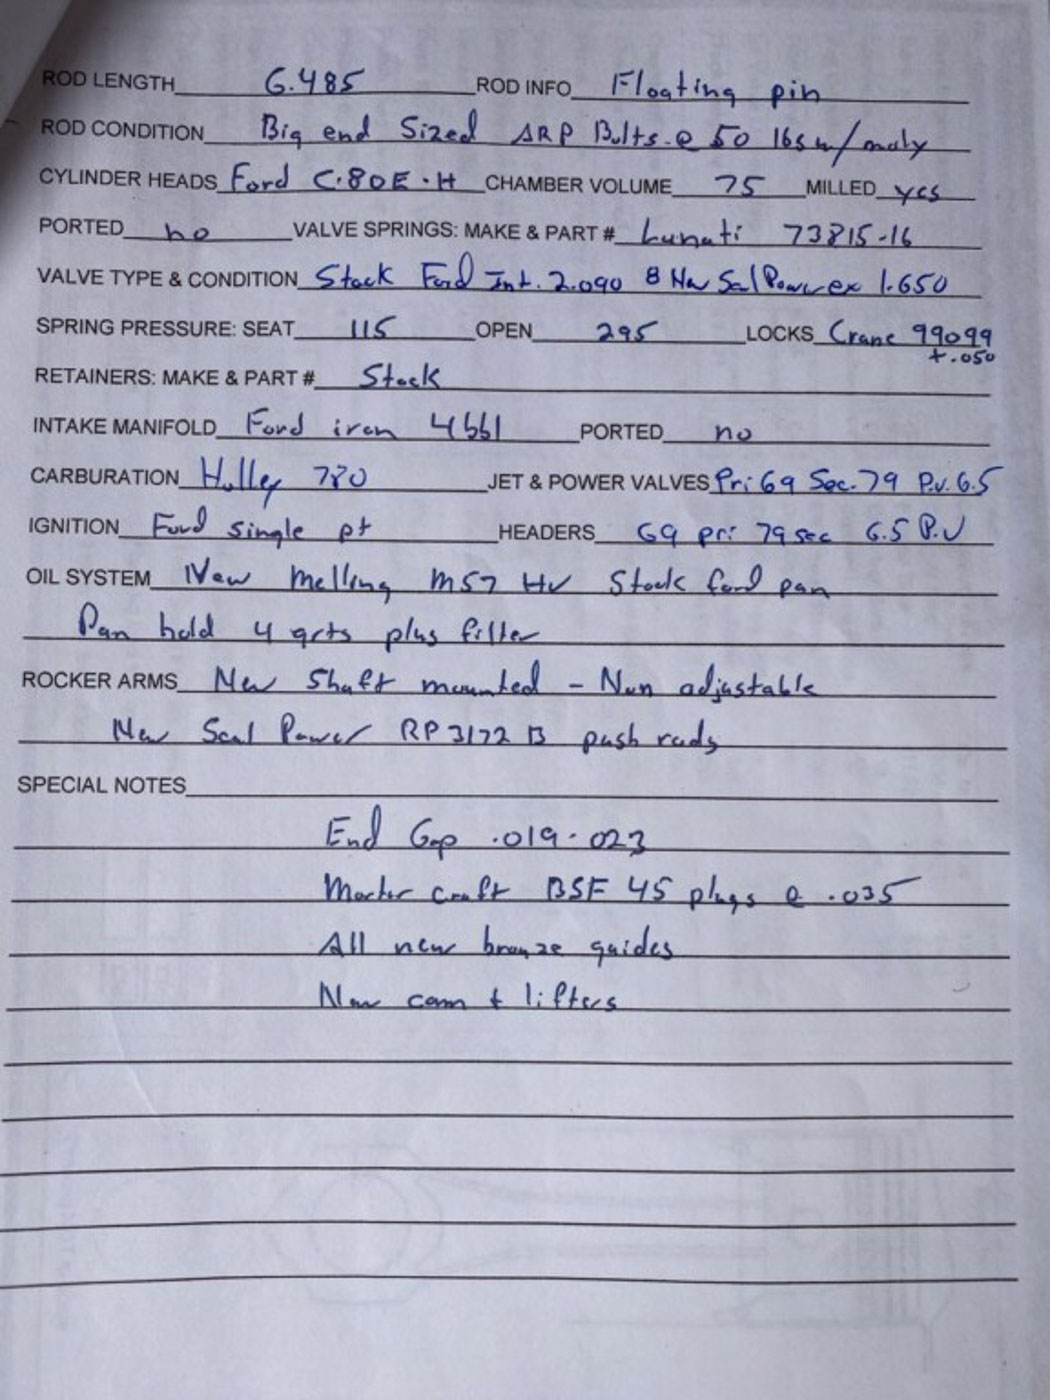 ROD LENGTH 6.485 ROD INFO Floating pin
ROD CONDITION Big end Sized ARP Bolts @ 50 lbs w/ moly
CYLINDER HEADS Ford C.80E.H CHAMBER VOLUME 75 MILLED yes
PORTED no VALVE SPRINGS: MAKE & PART # Lunati 73815-16
VALVE TYPE & CONDITION Stock Ford Int. 2.090 8 New Seal Power ex 1.650
SPRING PRESSURE: SEAT 115 OPEN 295 LOCKS Crane 99099
+.050
RETAINERS: MAKE & PART # Stock
INTAKE MANIFOLD Ford iron 4bbl PORTED no
CARBURATION Holley 780 JET & POWER VALVES Pri 69 Sec. 79 P.V. 6.5
IGNITION Ford single pt HEADERS 69 pri 79 sec 6.5 P.V
OIL SYSTEM New Melling M57 HV Stock ford pan
Pan hold 4 qrts plus filter
ROCKER ARMS New Shaft mounted - Non adjustable
New Seal Power RP 3172 B push rods
SPECIAL NOTES
End Gap .019-.023
Motor craft BSF 45 plugs @ .035
All new bronze guides
New cam + lifters